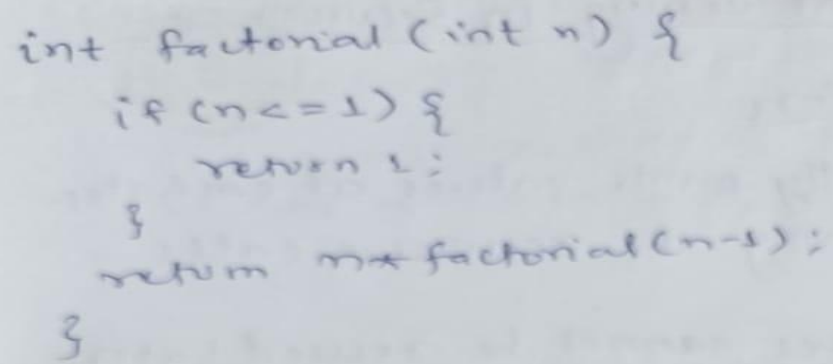 int factorial (int n) {
if (n<=1) {
return 1;
}
return n* factorial (n-1);
}